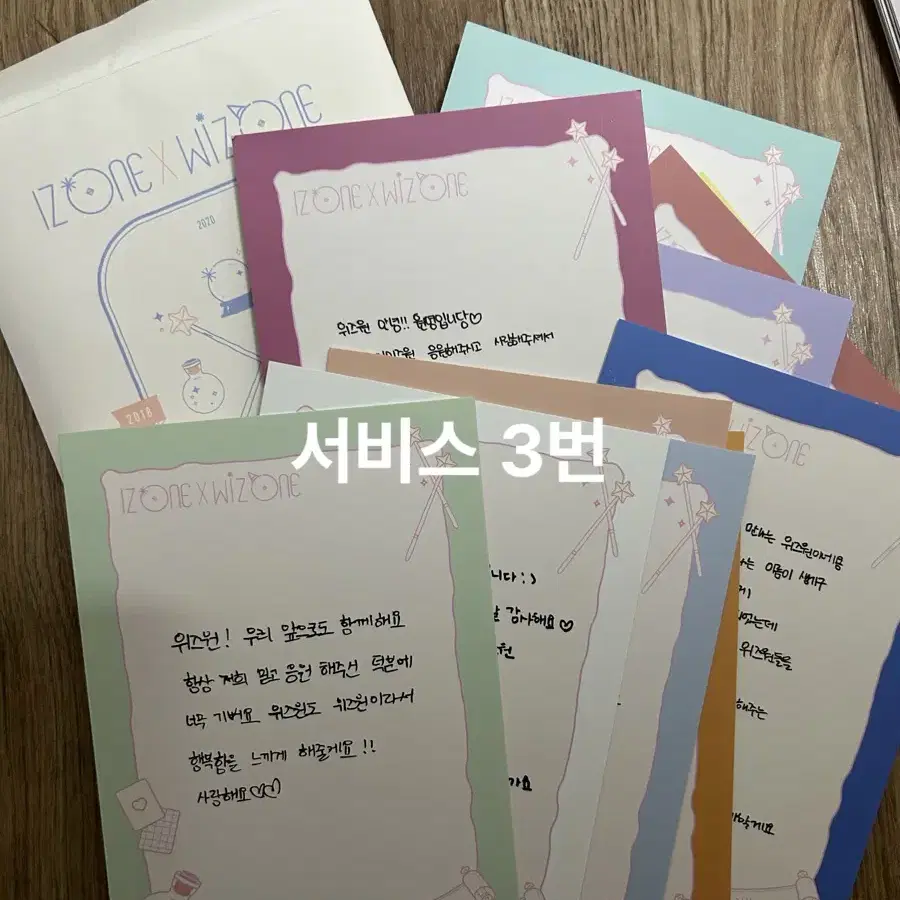 IZ*ONE X WIZ*ONE
2020
2018
IZ*ONE X WIZ*ONE
위즈원 안녕!! 원영입니당♡
위즈원 응원해주시고 사랑해주셔서
서비스 3번
IZ*ONE X WIZ*ONE
위즈원! 우리 앞으로도 함께해요
항상 저희 믿고 응원 해주신 덕분에
너무 기뻐요 위즈원도 위즈원이라서
행복함을 느끼게 해줄게요!!
사랑해요♡♡
니다:)
감사해요♡
가요
ZONE
위즈원이에욤
는 이름이 생기구
위즈원들을
해주는